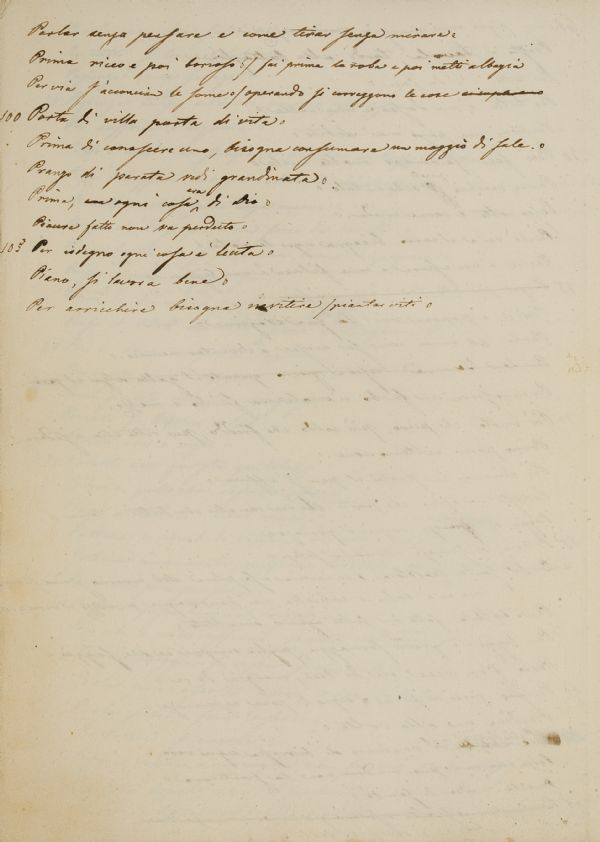 Parlar senza pensare è come tirar senza mirare.
Prima ricco e poi borioso (si fa prima la roba e poi metti albagia
Per via s'acconcian le some (operando si correggono le cose
100 Porta di villa porta di vita.
Prima di conoscere uno, bisogna consumare un moggio di sale.
Pranzo di parata vedi grandinata.
Prima, ogni cosa era di Dio.
Piacere fatto non va perduto.
Per isdegno ogni cosa è lecita.
Piano, si lavora bene.
Per arricchire bisogna invitire (piantar viti.